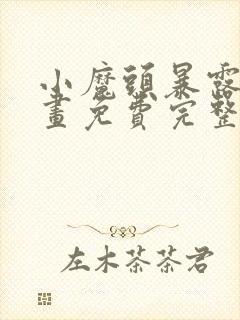 小魔頭暴露
畫免費完整
左木茶茶君